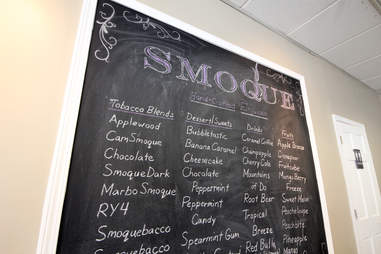 SMOQUE
Tobacco Blends
Applewood
CamSmoque
Chocolate
SmoqueDark
Marbo Smoque
RY4
Smoquebacco
Dessert/Sweets
Bubbletastic
Banana Caramel
Cheesecake
Chocolate
Peppermint
Peppermint
Candy
Spearmint Gum
Drinks
Caramel Coffee
Champagne
Cherry Cola
Mountains
of Do
Root Beer
Tropical
Breeze
Red Bully
Fruits
Apple
Cinnapear
Fruitcube
Mango Berry
Freeze
Sweet Melon
Pineapple
Mango